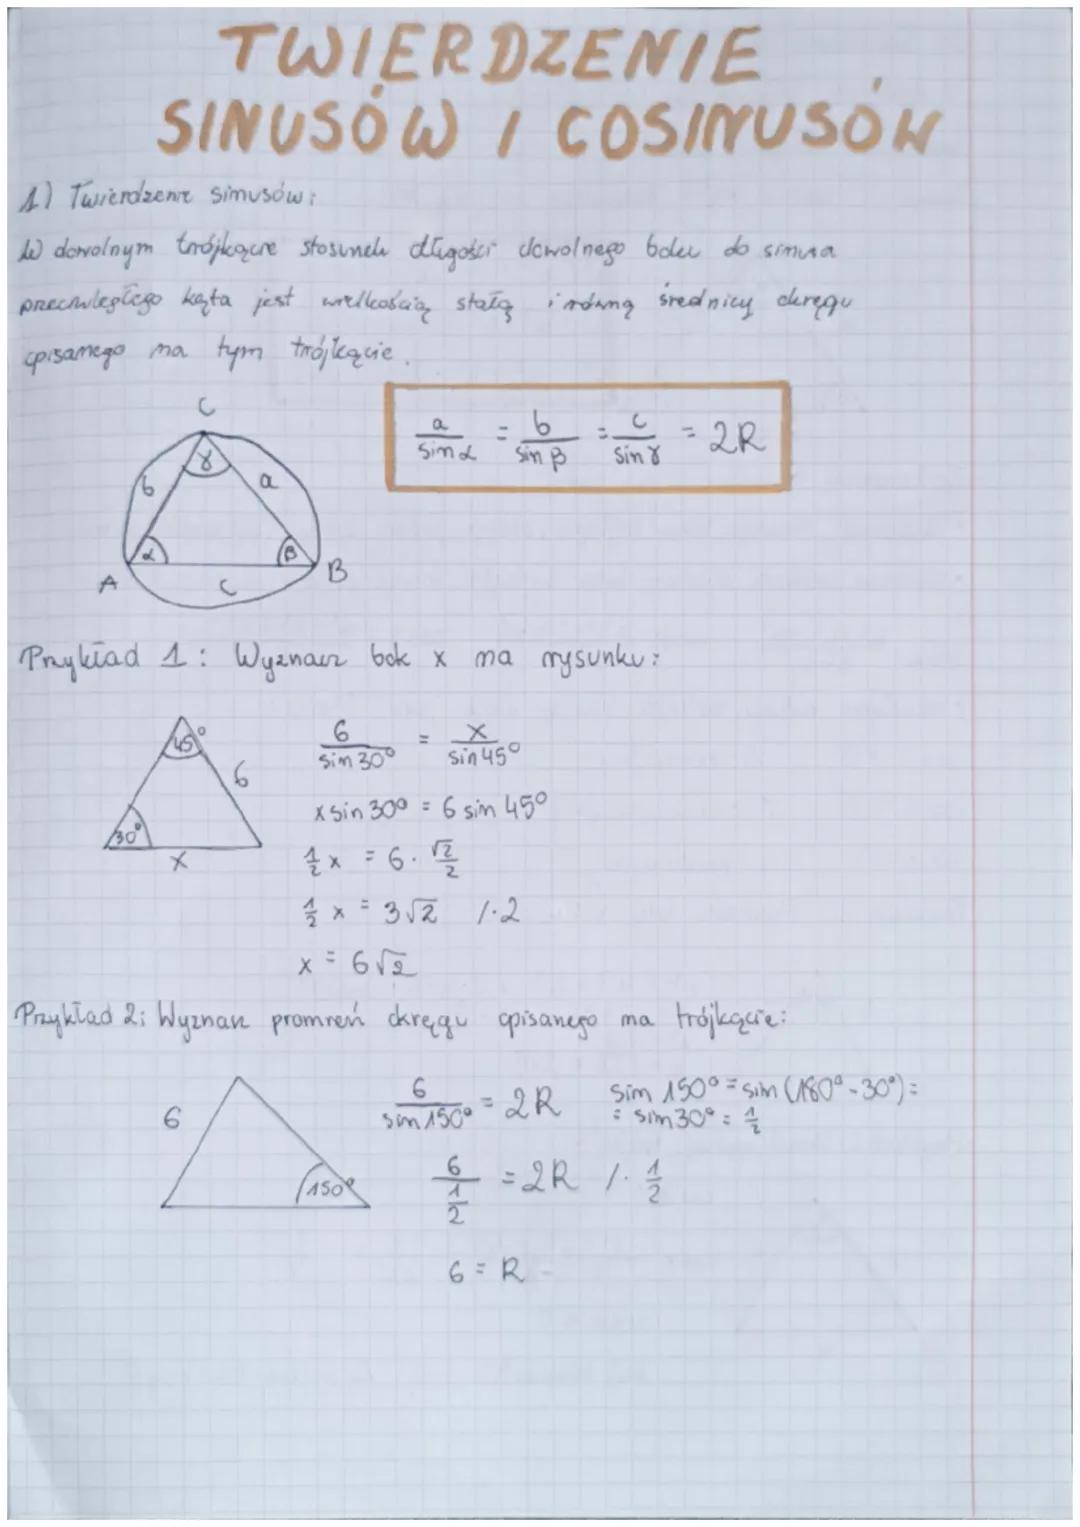 TWIERDZENIE
SINUSÓW I COSINUSÓW
1) Twierdzenie sinusów:
W dowolnym trójkącie stosunek długości dowolnego boku do sinusa
przeciwległego kąta jest wielkością stałą i równą średnicy okręgu
opisanego na tym trójkącie.
C
γ
b a
α β
A c B
a/sin α = b/sin β = c/sin γ = 2R
Przykład 1: Wyznacz bok x na rysunku:
45°
6
30°
x
6/sin 30° = x/sin 45°
x sin 30° = 6 sin 45°
1/2 x = 6 · √2/2
1/2 x = 3√2 /·2
x = 6√2
Przykład 2: Wyznacz promień okręgu opisanego na trójkącie:
6
150°
6/sin 150° = 2R
sin 150° = sin (180° - 30°) =
= sin 30° = 1/2
6/(1/2) = 2R /· 1/2
6 = R